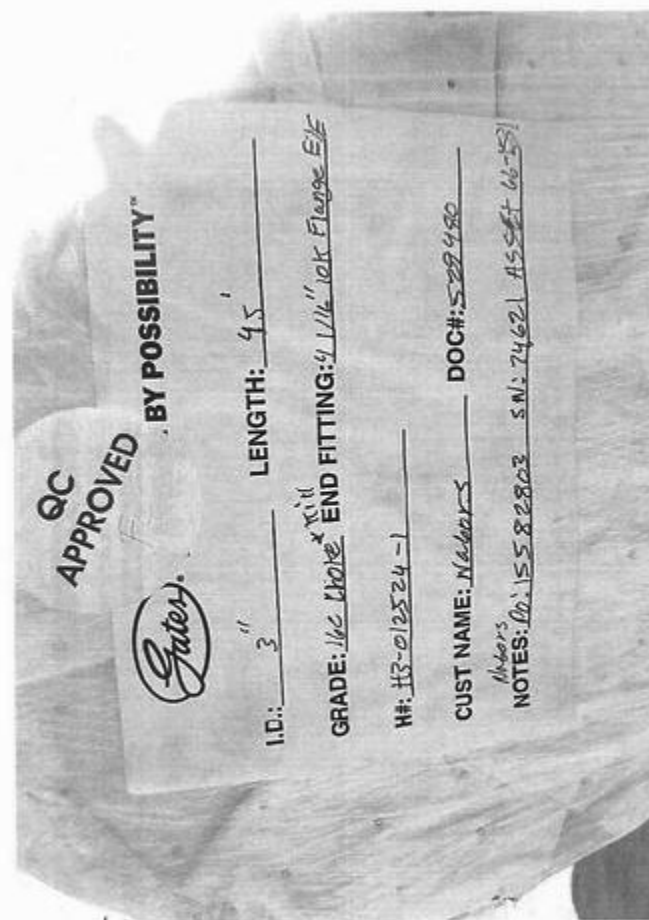 QC
APPROVED
Gates. BY POSSIBILITY™
I.D.: 3" LENGTH: 45'
GRADE: 16C Choke & Kill END FITTING: 4 1/16" 10K Flange E/E
H#: H3-012524-1
CUST NAME: Nabors DOC#: 529480
Nabors
NOTES: PO: 15582803 SN: 74621 ASSET 66-1531